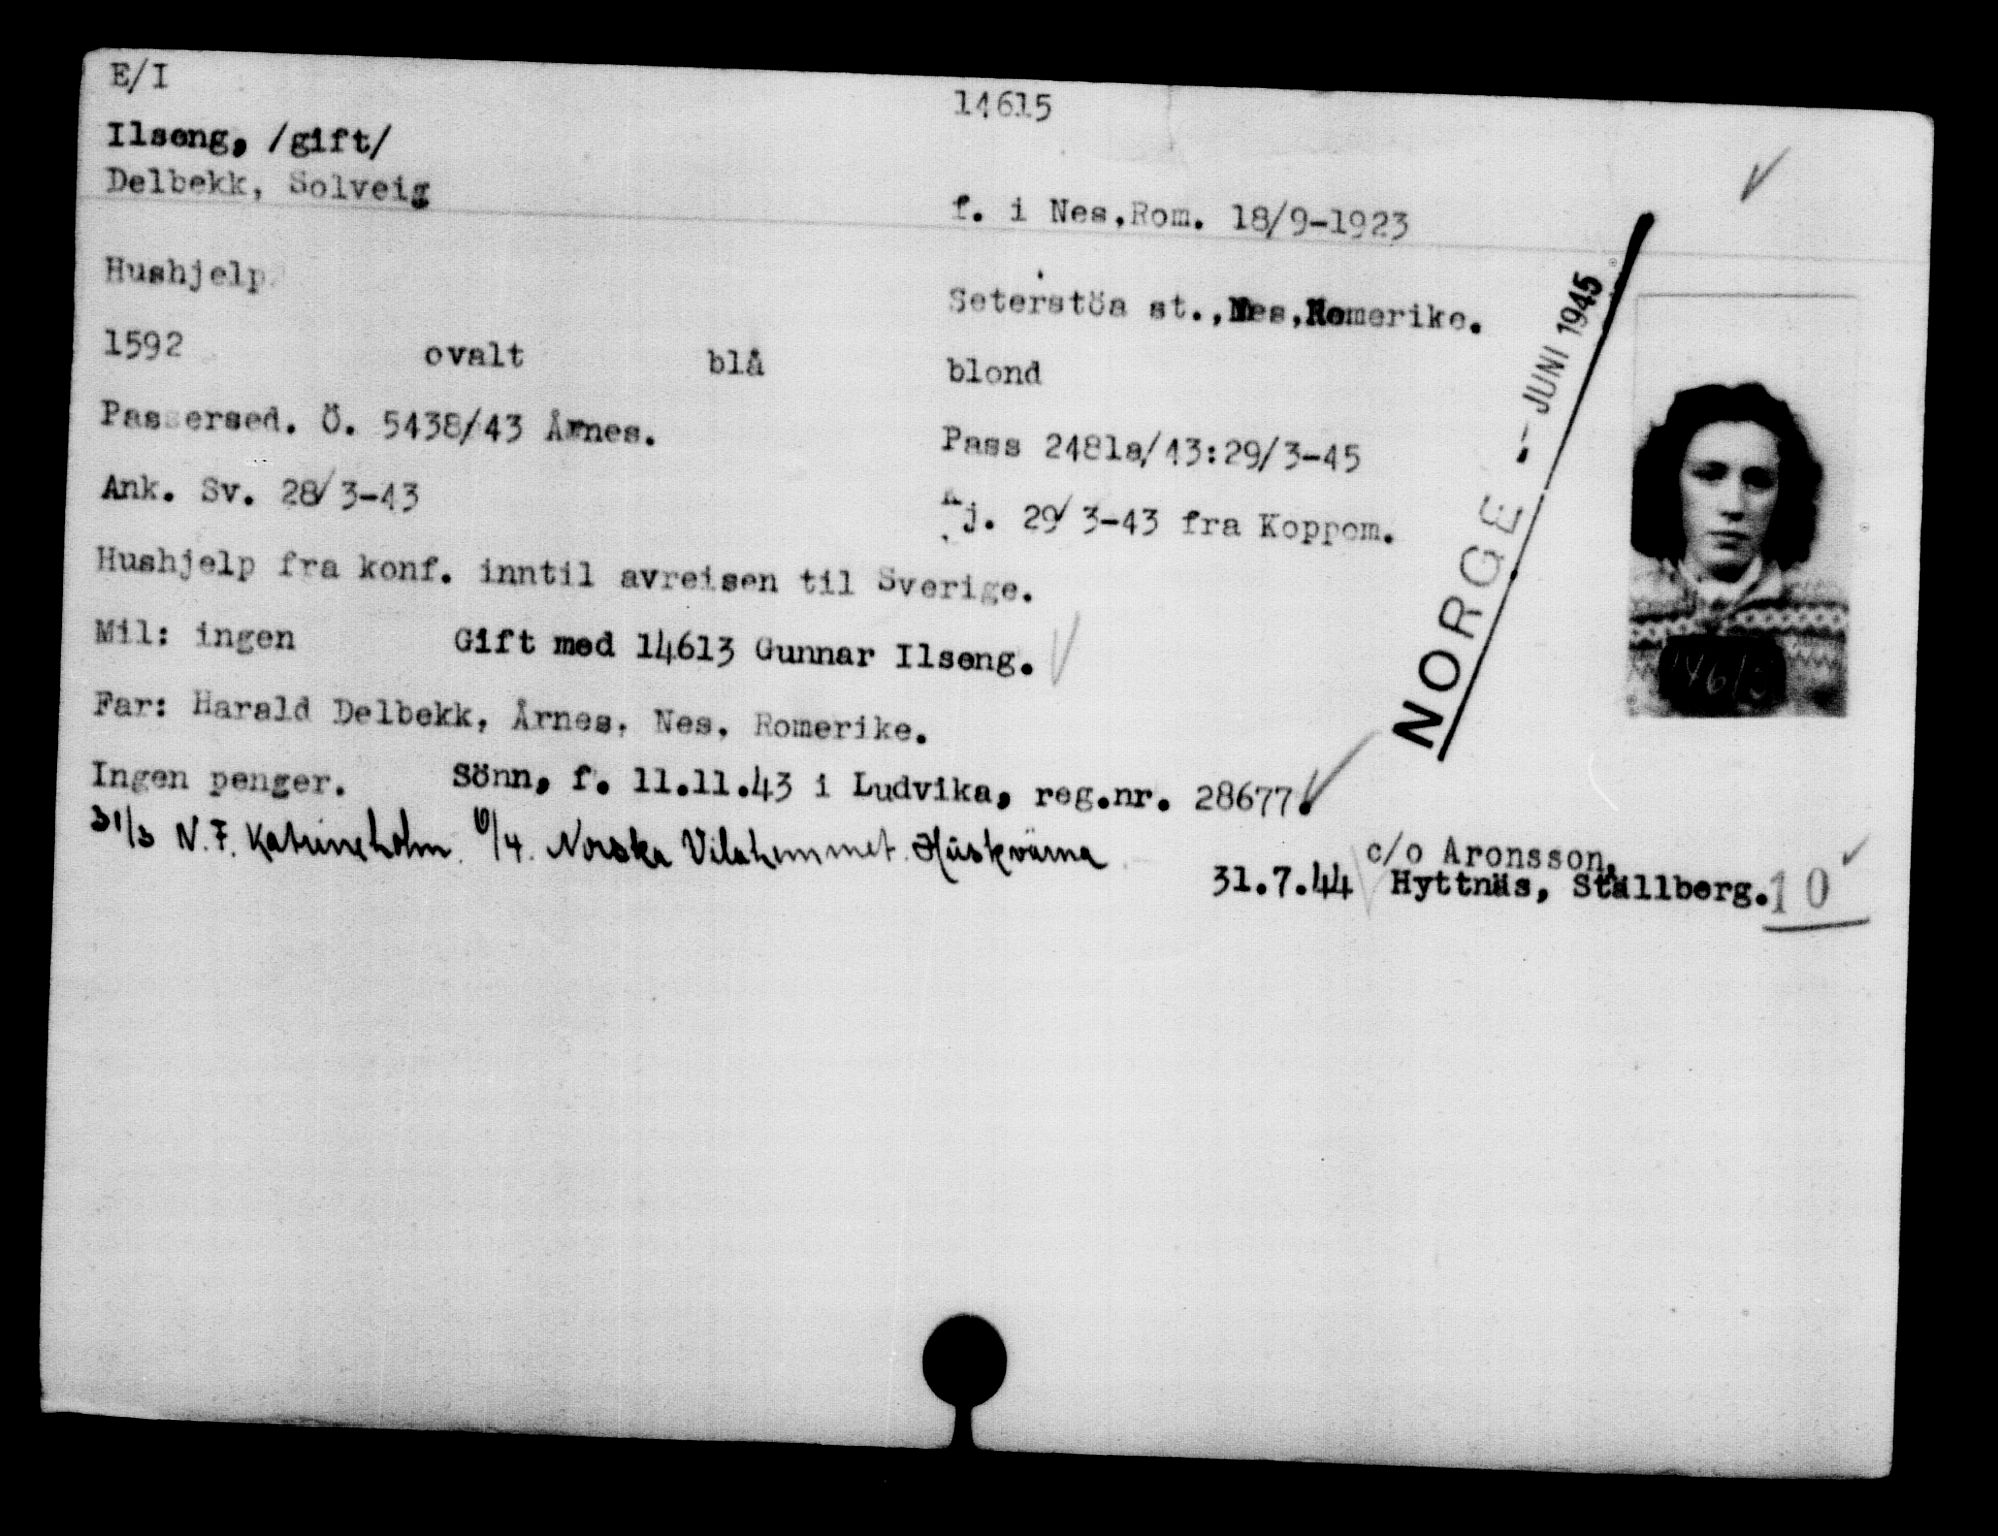 E/I
14615
Ilseng, /gift/
Delbekk, Solveig
f. i Nes,Rom. 18/9-1923
Hushjelp
Seterstöa st.,Nes,Romerike.
1592 ovalt blå blond
Passersed. Ö. 5438/43 Årnes.
Pass 2481a/43:29/3-45
Ank. Sv. 28/3-43
Kj. 29/3-43 fra Koppom.
Hushjelp fra konf. inntil avreisen til Sverige.
Mil: ingen Gift med 14613 Gunnar Ilseng.
Far: Harald Delbekk, Årnes, Nes, Romerike.
Ingen penger. Sönn, f. 11.11.43 i Ludvika, reg.nr. 28677.
31/3 N.F. Katrineholm. 6/4. Norska Vilohemmet. Hüskvärna
c/o Aronsson,
31.7.44 Hyttnäs, Ställberg.
10
NORGE -- JUNI 1945
14615